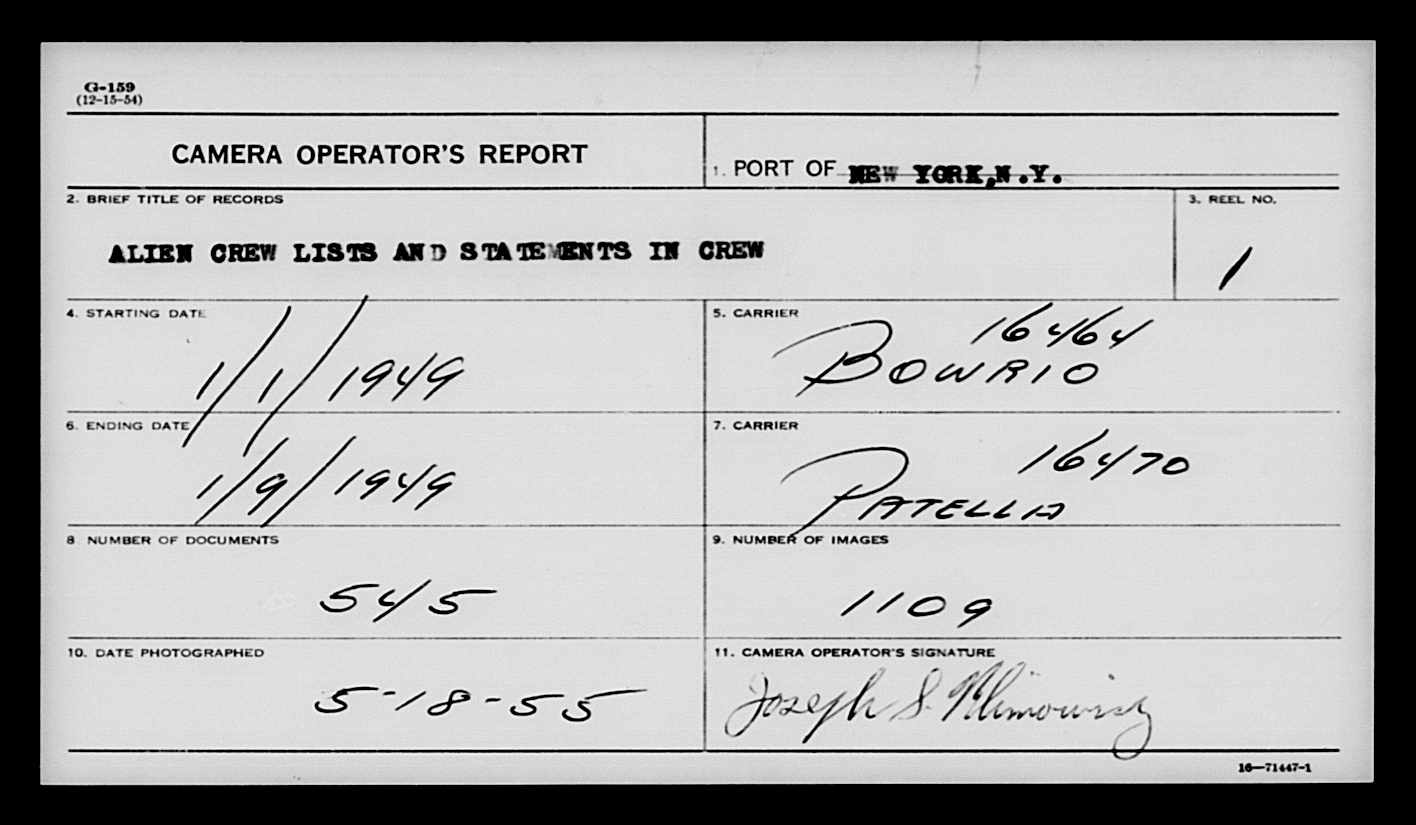 G-159
(12-15-54)
CAMERA OPERATOR'S REPORT
1. PORT OF NEW YORK, N.Y.
2. BRIEF TITLE OF RECORDS
ALIEN CREW LISTS AND STATEMENTS IN CREW
3. REEL NO.
1
4. STARTING DATE
1/1/1949
5. CARRIER
16464
BOWRIO
6. ENDING DATE
1/9/1949
7. CARRIER
16470
PATELLA
8 NUMBER OF DOCUMENTS
545
9. NUMBER OF IMAGES
1109
10. DATE PHOTOGRAPHED
5-18-55
11. CAMERA OPERATOR'S SIGNATURE
Joseph S.
16—71447-1